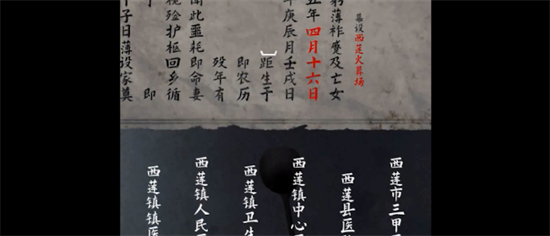 设西莲火葬场
薄祚变及亡女
年四月十六日
庚辰月壬戌日
距生于
即农历
殁年有
此噩耗即命妻
殓护柩回乡循
即
子日薄设家奠
西莲市三甲
西莲县医
西莲镇中心
西莲镇卫生
西莲镇人民
西莲镇镇医